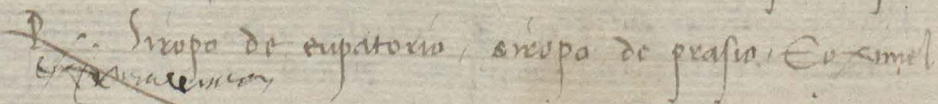 R ∴ Siropo de eupatorio, siropo de prasio, Eo ximel